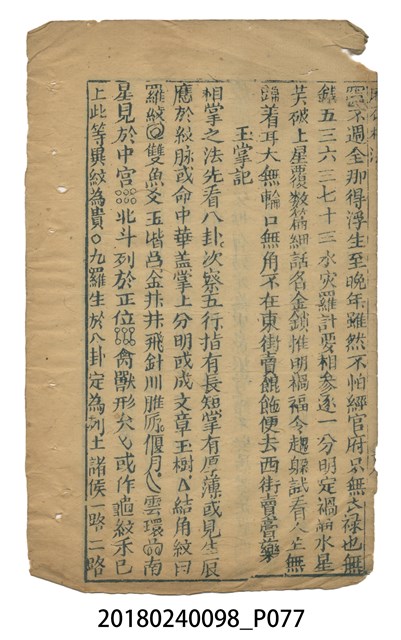 不週全那得浮生至晚年雖然不怕經官府又無衣祿也無
五三六三七十三水灾羅計要相參逐一分明定禍福水星
破上星覆数篇細話名金鎖惟明禍福令趨躱試看人生無
着耳大無輪口無角不在東街賣餛飩便去西街賣膏藥
玉掌記
相掌之法先看八卦次察五行指有長短掌有厚薄或見生辰
應於紋脉或命中華盖掌上分明或成文章玉樹結角紋曰
羅紋雙魚爻玉階金井井飛針川雁偃月雲環南
星見於中宮北斗列於正位禽獸形矢弓或作龜紋禾巳
上此等異紋為貴○九羅生於八卦定為列土諸侯一路二路
20180240098_P077